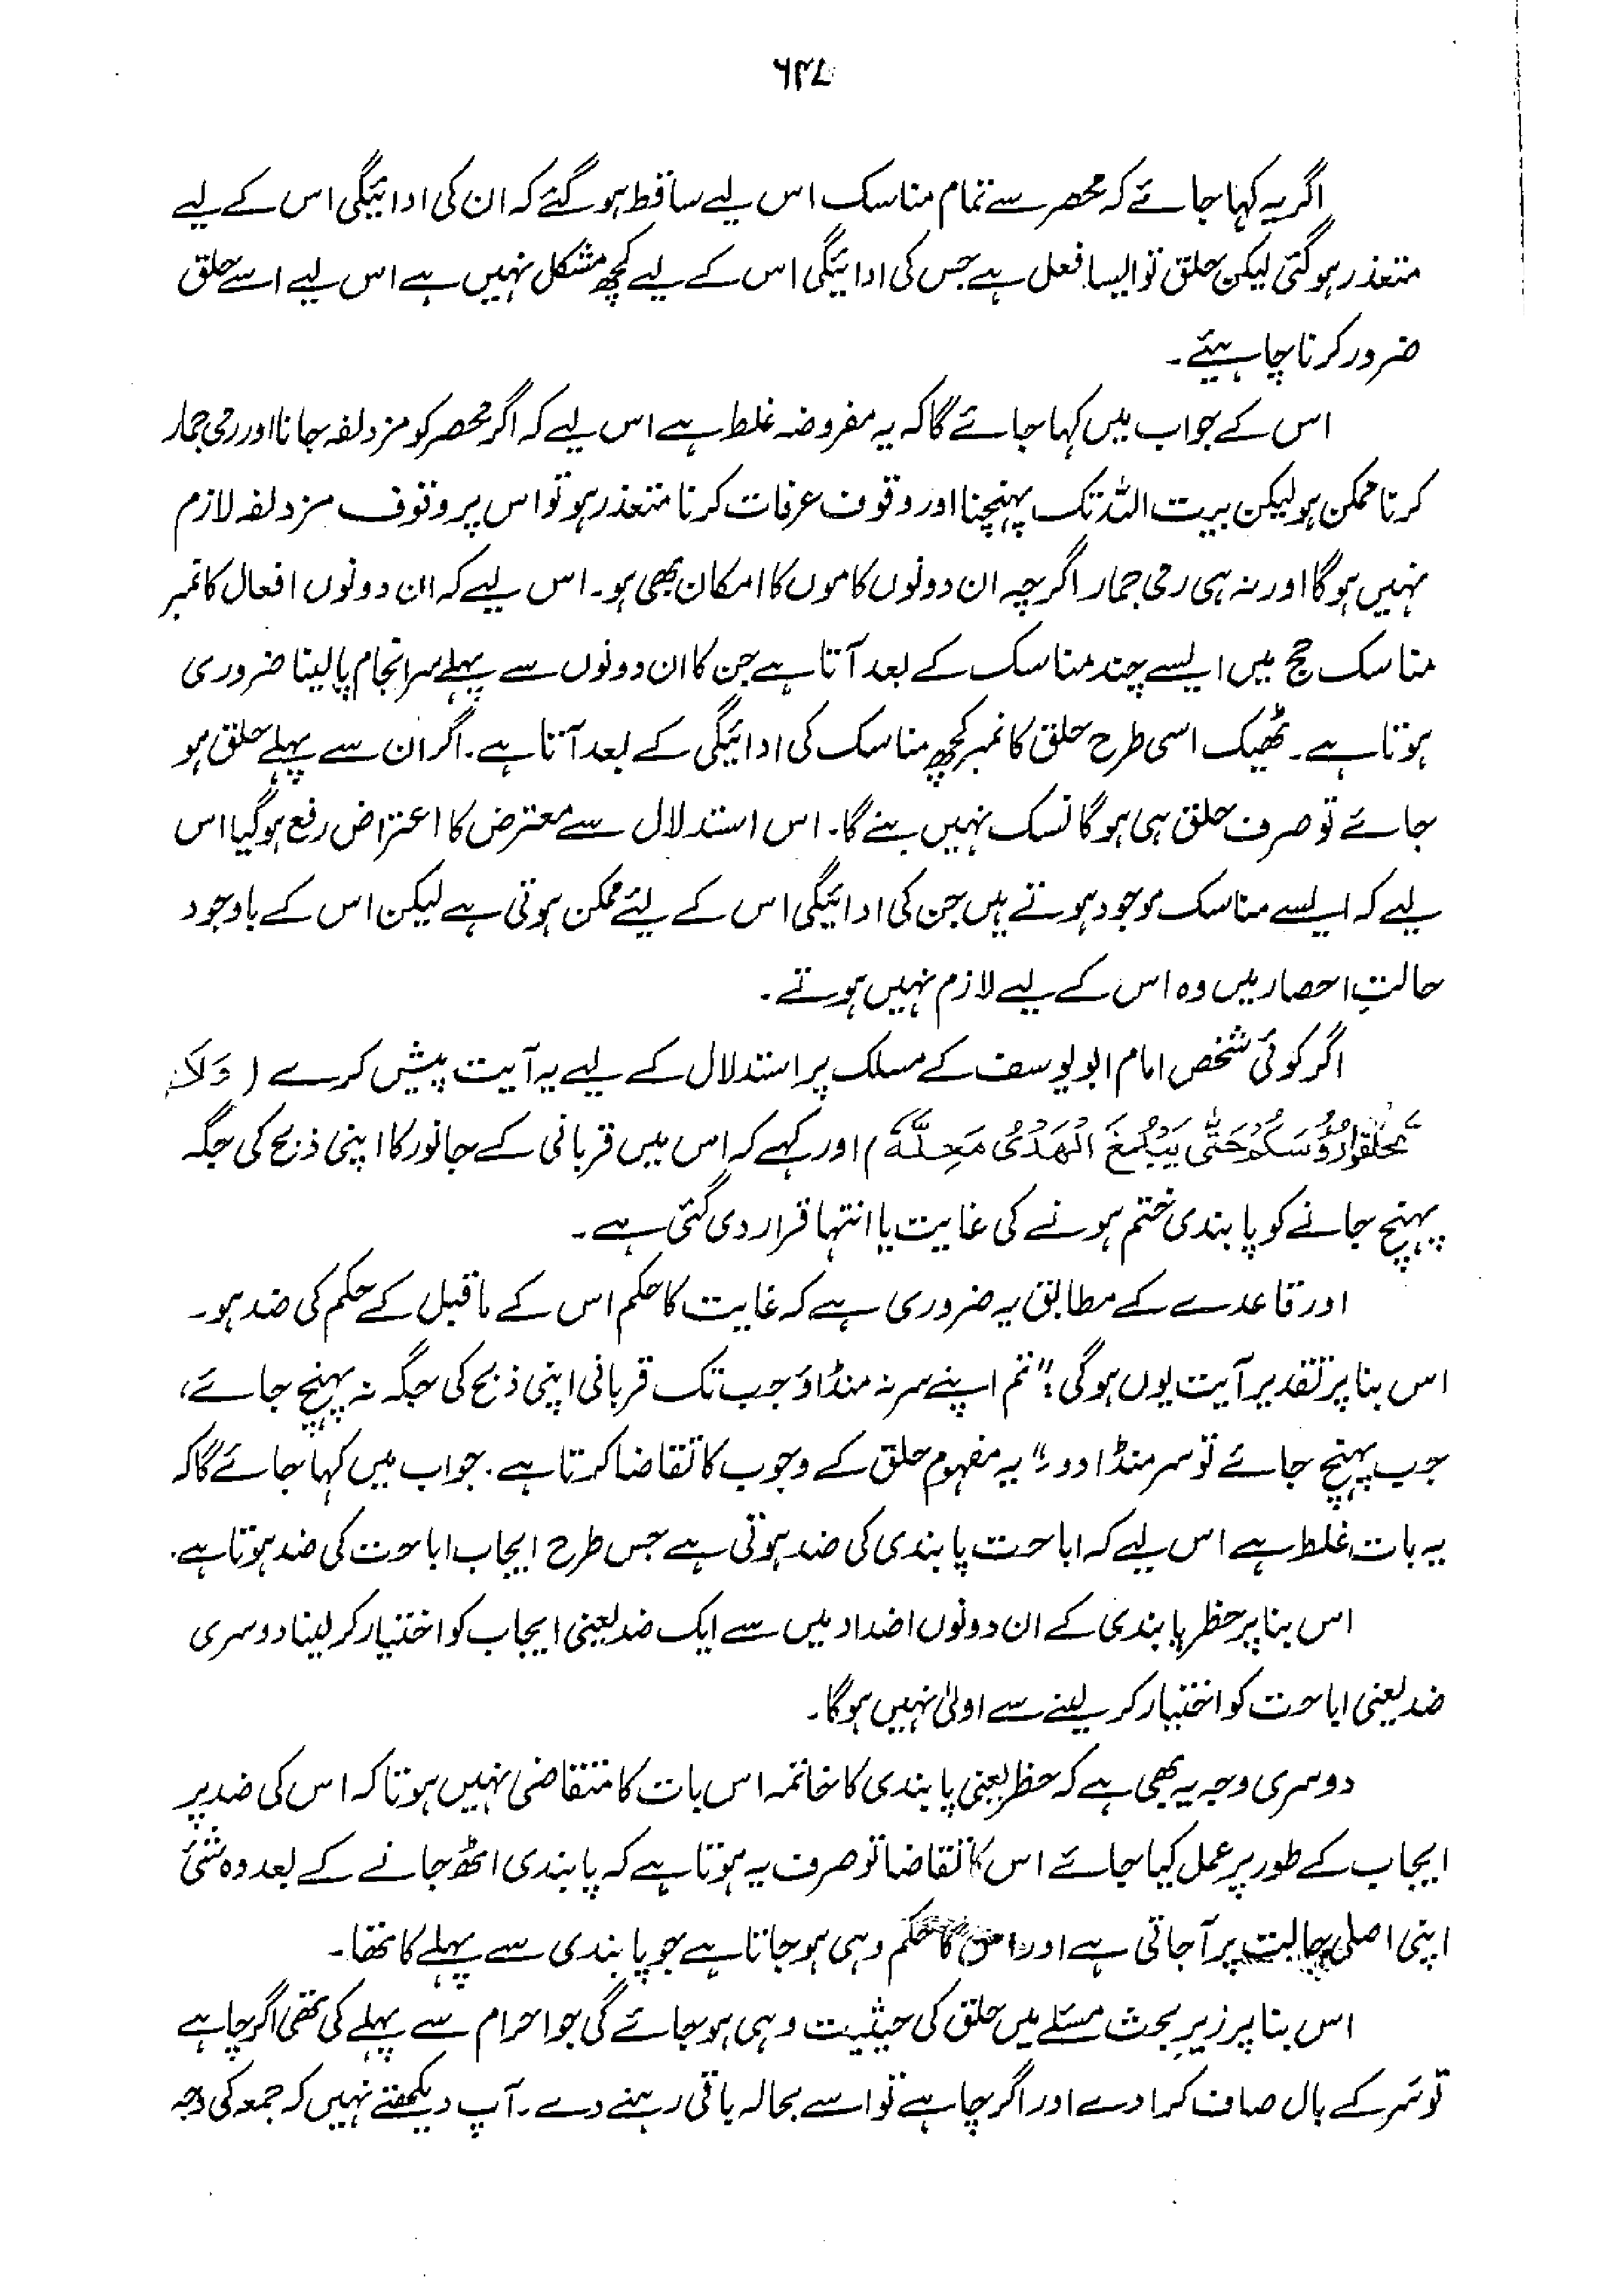 ۶۳۷
اگر یہ کہا جائے کہ محصر سے تمام مناسک اس لیے ساقط ہو گئے کہ ان کی ادائیگی اس کے لیے
متعذر ہو گئی لیکن حلق تو ایسا فعل ہے جس کی ادائیگی اس کے لیے کچھ مشکل نہیں ہے اس لیے اسے حلق
ضرور کرنا چاہیئے۔
اس کے جواب میں کہا جائے گا کہ یہ مفروضہ غلط ہے اس لیے کہ اگر محصر کو مزدلفہ جانا اور رمی جمار
کرنا ممکن ہو لیکن بیت اللہ تک پہنچنا اور وقوف عرفات کرنا متعذر ہو تو اس پر وقوف مزدلفہ لازم
نہیں ہوگا اور نہ ہی رمی جمار اگرچہ ان دونوں کاموں کا امکان بھی ہو۔ اس لیے کہ ان دونوں افعال کا نمبر
مناسک حج میں ایسے چند مناسک کے بعد آتا ہے جن کا ان دونوں سے پہلے سرانجام پا لینا ضروری
ہوتا ہے۔ ٹھیک اسی طرح حلق کا نمبر کچھ مناسک کی ادائیگی کے بعد آتا ہے۔ اگر ان سے پہلے حلق ہو
جائے تو صرف حلق ہی ہوگا نسک نہیں بنے گا۔ اس استدلال سے معترض کا اعتراض رفع ہو گیا اس
لیے کہ ایسے مناسک موجود ہوتے ہیں جن کی ادائیگی اس کے لئے ممکن ہوتی ہے لیکن اس کے باوجود
حالتِ احصار میں وہ اس کے لیے لازم نہیں ہوتے۔
اگر کوئی شخص امام ابویوسف کے مسلک پر استدلال کے لیے یہ آیت پیش کرے (وَلَا
تَحْلِقُوْا رُؤُسَكُمْ حَتّٰى يَبْلُغَ الْهَدْىُ مَحِلَّهٗ) اور کہے کہ اس میں قربانی کے جانور کا اپنی ذبح کی جگہ
پہنچ جانے کو پابندی ختم ہونے کی غایت یا انتہا قرار دی گئی ہے۔
اور قاعدے کے مطابق یہ ضروری ہے کہ غایت کا حکم اس کے ماقبل کے حکم کی ضد ہو۔
اس بنا پر تقدیر آیت یوں ہوگی: "تم اپنے سر نہ منڈاؤ جب تک قربانی اپنی ذبح کی جگہ نہ پہنچ جائے،
جب پہنچ جائے تو سر منڈا دو۔" یہ مفہوم حلق کے وجوب کا تقاضا کرتا ہے۔ جواب میں کہا جائے گا کہ
یہ بات غلط ہے اس لیے کہ اباحت پابندی کی ضد ہوتی ہے جس طرح ایجاب اباحت کی ضد ہوتا ہے۔
اس بنا پر حظر پابندی کے ان دونوں اضداد میں سے ایک ضد یعنی ایجاب کو اختیار کر لینا دوسری
ضد یعنی اباحت کو اختیار کر لینے سے اولیٰ نہیں ہوگا۔
دوسری وجہ یہ بھی ہے کہ حظر یعنی پابندی کا خاتمہ اس بات کا متقاضی نہیں ہوتا کہ اس کی ضد پر
ایجاب کے طور پر عمل کیا جائے اس کا تقاضا تو صرف یہ ہوتا ہے کہ پابندی اٹھ جانے کے بعد وہ شئی
اپنی اصلی حالت پر آجاتی ہے اور اس کا حکم وہی ہو جاتا ہے جو پابندی سے پہلے کا تھا۔
اس بنا پر زیرِ بحث مسئلے میں حلق کی حیثیت وہی ہو جائے گی جو احرام سے پہلے کی تھی اگر چاہے
تو سَر کے بال صاف کرا دے اور اگر چاہے تو اسے بحالہ باقی رہنے دے۔ آپ دیکھتے نہیں کہ جمعہ کی وجہ